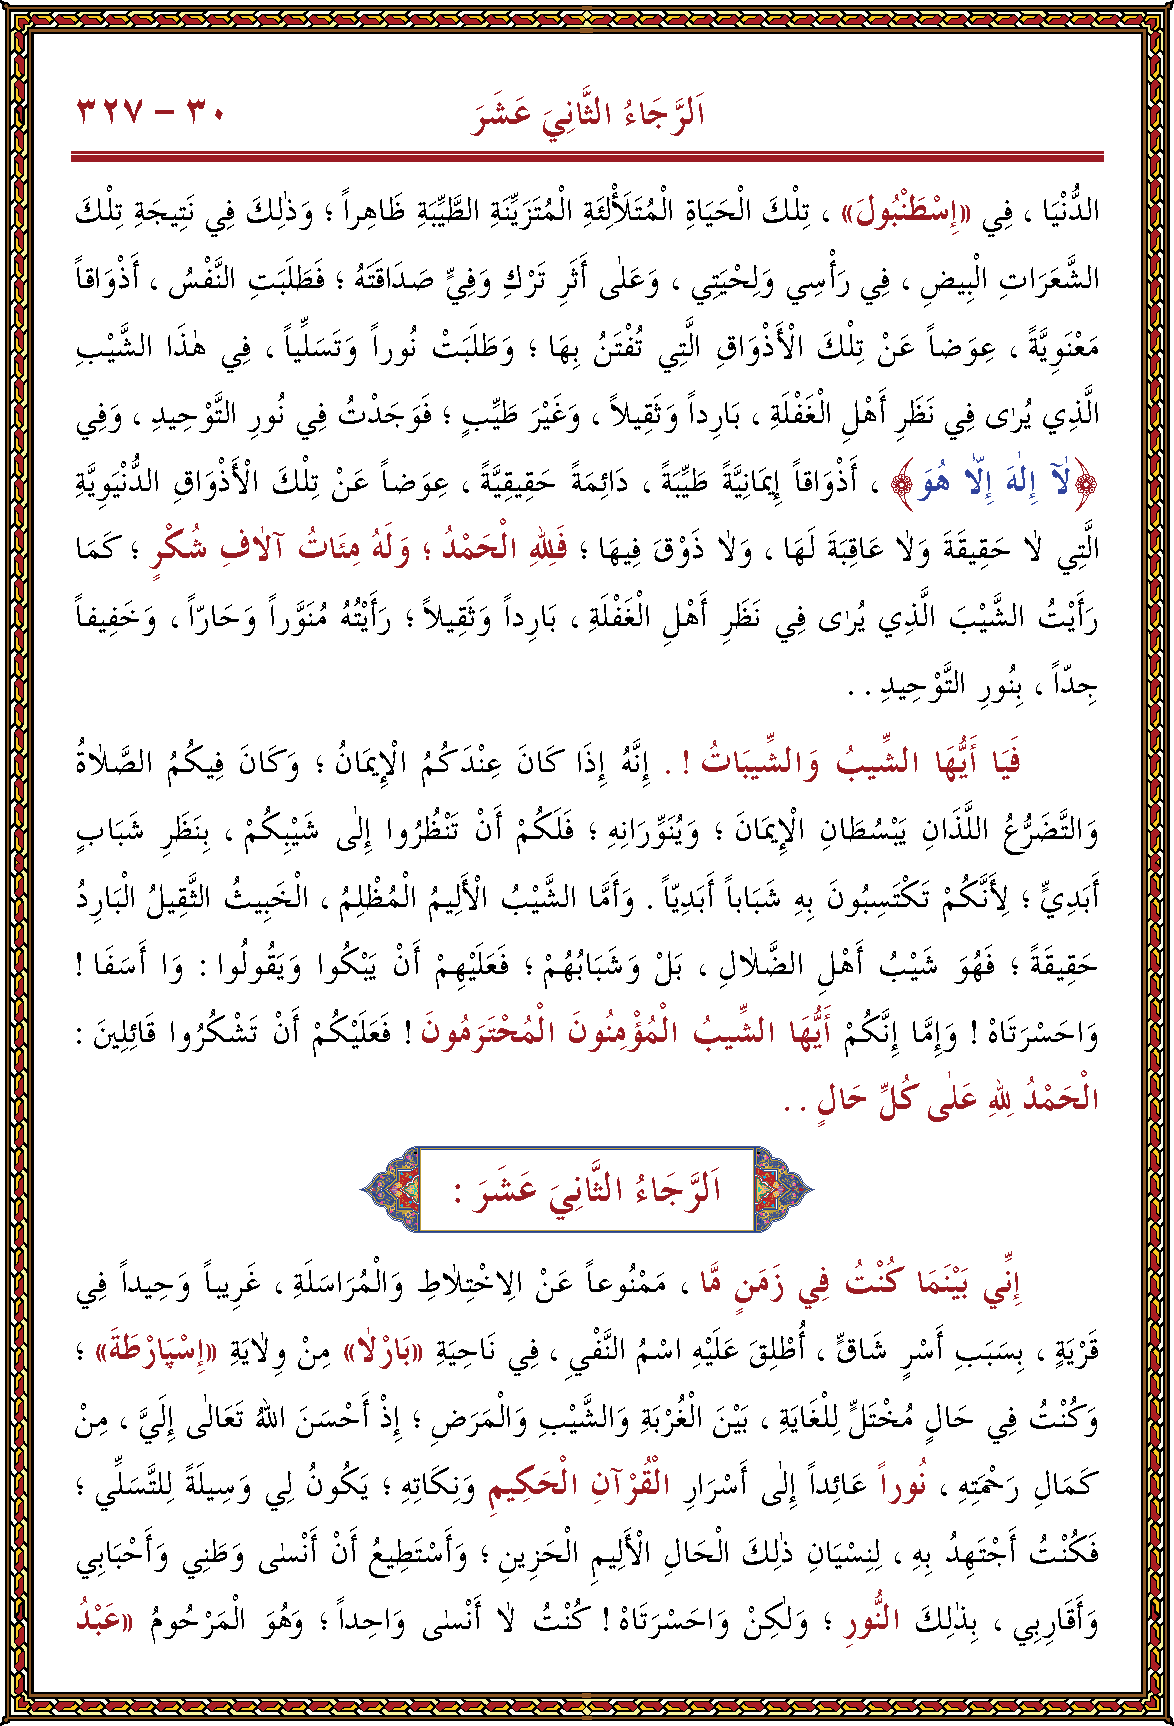 اَلرَّجَاءُ الثَّانِيَ عَشَرَ ٣٠ – ٣٢٧
الدُّنْيَا ، فِي «إِسْطَنْبُولَ» ، تِلْكَ الْحَيَاةِ الْمُتَلَأْلِئَةِ الْمُتَزَيِّنَةِ الطَّيِّبَةِ ظَاهِراً ؛ وَذٰلِكَ فِي نَتِيجَةِ تِلْكَ
الشَّعَرَاتِ الْبِيضِ ، فِي رَأْسِي وَلِحْيَتِي ، وَعَلٰى أَثَرِ تَرْكِ وَفِيٍّ صَدَاقَتَهُ ؛ فَطَلَبَتِ النَّفْسُ ، أَذْوَاقاً
مَعْنَوِيَّةً ، عِوَضاً عَنْ تِلْكَ الْأَذْوَاقِ الَّتِي تُفْتَنُ بِهَا ؛ وَطَلَبَتْ نُوراً وَتَسَلِّياً ، فِي هٰذَا الشَّيْبِ
الَّذِي يُرٰى فِي نَظَرِ أَهْلِ الْغَفْلَةِ ، بَارِداً وَثَقِيلاً ، وَغَيْرَ طَيِّبٍ ؛ فَوَجَدْتُ فِي نُورِ التَّوْحِيدِ ، وَفِي
﴿لَآ إِلٰهَ إِلَّا هُوَ﴾ ، أَذْوَاقاً إِيمَانِيَّةً طَيِّبَةً ، دَائِمَةً حَقِيقِيَّةً ، عِوَضاً عَنْ تِلْكَ الْأَذْوَاقِ الدُّنْيَوِيَّةِ
الَّتِي لَا حَقِيقَةَ وَلَا عَاقِبَةَ لَهَا ، وَلَا ذَوْقَ فِيهَا ؛ فَلِلّٰهِ الْحَمْدُ ؛ وَلَهُ مِئَاتُ آلَافِ شُكْرٍ ؛ كَمَا
رَأَيْتُ الشَّيْبَ الَّذِي يُرٰى فِي نَظَرِ أَهْلِ الْغَفْلَةِ ، بَارِداً وَثَقِيلاً ؛ رَأَيْتُهُ مُنَوَّراً وَحَارّاً ، وَخَفِيفاً
جِدّاً ، بِنُورِ التَّوْحِيدِ . .
فَيَا أَيُّهَا الشِّيبُ وَالشِّيبَاتُ ! . إِنَّهُ إِذَا كَانَ عِنْدَكُمُ الْإِيمَانُ ؛ وَكَانَ فِيكُمُ الصَّلَاةُ
وَالتَّضَرُّعُ اللَّذَانِ يَبْسُطَانِ الْإِيمَانَ ؛ وَيُنَوِّرَانِهِ ؛ فَلَكُمْ أَنْ تَنْظُرُوا إِلٰى شَيْبِكُمْ ، بِنَظَرِ شَبَابٍ
أَبَدِيٍّ ؛ لِأَنَّكُمْ تَكْتَسِبُونَ بِهِ شَبَاباً أَبَدِيّاً . وَأَمَّا الشَّيْبُ الْأَلِيمُ الْمُظْلِمُ ، الْخَبِيثُ الثَّقِيلُ الْبَارِدُ
حَقِيقَةً ؛ فَهُوَ شَيْبُ أَهْلِ الضَّلَالِ ، بَلْ وَشَبَابُهُمْ ؛ فَعَلَيْهِمْ أَنْ يَبْكُوا وَيَقُولُوا : وَا أَسَفَا !
وَاحَسْرَتَاهْ ! وَإِمَّا إِنَّكُمْ أَيُّهَا الشِّيبُ الْمُؤْمِنُونَ الْمُحْتَرَمُونَ ! فَعَلَيْكُمْ أَنْ تَشْكُرُوا قَائِلِينَ :
الْحَمْدُ لِلّٰهِ عَلٰى كُلِّ حَالٍ . .
اَلرَّجَاءُ الثَّانِيَ عَشَرَ :
إِنِّي بَيْنَمَا كُنْتُ فِي زَمَنٍ مَّا ، مَمْنُوعاً عَنْ الِاخْتِلَاطِ وَالْمُرَاسَلَةِ ، غَرِيباً وَحِيداً فِي
قَرْيَةٍ ، بِسَبَبِ أَسْرٍ شَاقٍّ ، أُطْلِقَ عَلَيْهِ اسْمُ النَّفْيِ ، فِي نَاحِيَةِ «بَارْلَا» مِنْ وِلَايَةِ «إِسْپَارْطَةَ» ؛
وَكُنْتُ فِي حَالٍ مُخْتَلٍّ لِلْغَايَةِ ، بَيْنَ الْغُرْبَةِ وَالشَّيْبِ وَالْمَرَضِ ؛ إِذْ أَحْسَنَ اللهُ تَعَالٰى إِلَيَّ ، مِنْ
كَمَالِ رَحْمَتِهِ ، نُوراً عَائِداً إِلٰى أَسْرَارِ الْقُرْآنِ الْحَكِيمِ وَنِكَاتِهِ ؛ يَكُونُ لِي وَسِيلَةً لِلتَّسَلِّي ؛
فَكُنْتُ أَجْتَهِدُ بِهِ ، لِنِسْيَانِ ذٰلِكَ الْحَالِ الْأَلِيمِ الْحَزِينِ ؛ وَأَسْتَطِيعُ أَنْ أَنْسٰى وَطَنِي وَأَحْبَابِي
وَأَقَارِبِي ، بِذٰلِكَ النُّورِ ؛ وَلٰكِنْ وَاحَسْرَتَاهْ ! كُنْتُ لَا أَنْسٰى وَاحِداً ؛ وَهُوَ الْمَرْحُومُ «عَبْدُ